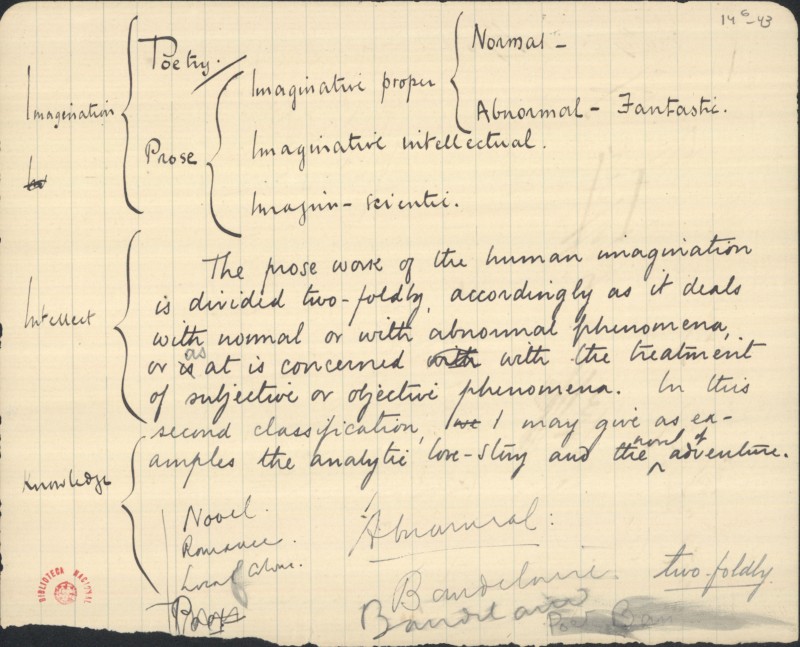 14 6-43
Normal –
Poetry.
Imaginative proper
Imagination
Abnormal – Fantastic.
Prose
Imaginative intellectual.
Imagin – scientic.
The prose work of the human imagination
is divided two-foldly, accordingly as it deals
Intellect
with normal or with abnormal phenomena,
or as at is concerned with with the treatment
of subjective or objective phenomena. In this
second classification, we I may give as ex-
amples the analytic love-story and the novel of adventure.
Knowledge
Novel.
Abnormal:
Romance.
Local
two-foldly.
Baudelaire
Baudelaire
BIBLIOTECA NACIONAL